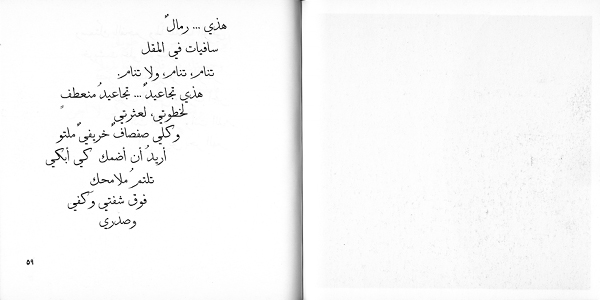 هذي ... رمالٌ
سافيات في المقل
تنام، تنام، ولا تنام.
هذي تجاعيدٌ ... تجاعيدُ منعطفٍ
لخطوتي، لعثرتي
وكلي صفصافٌ خريفيٌ ملتو
أريدُ أن أضمك كي أبكي
تلتمُ ملامحك
فوق شفتي وَكفي
وصدري
٥٩